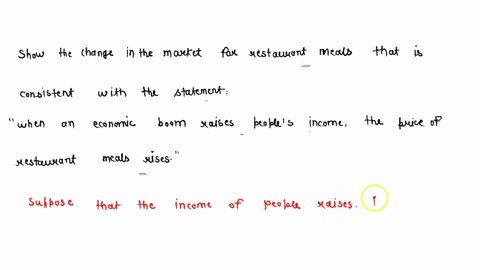 Show the change in the market for restaurant meals that is
consistent with the statement:
"when an economic boom raises people's income, the price of
restaurant meals rises."
Suppose that the income of people raises.